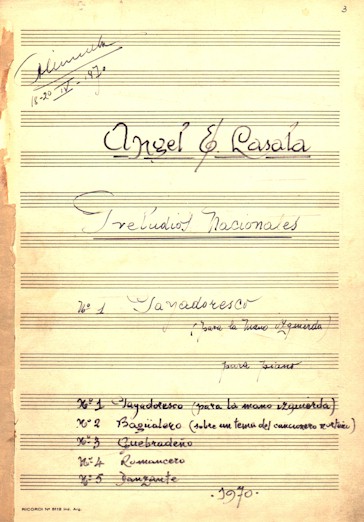 3
18-20 IV-1970
Angel E Lasala
Preludios Nacionales
Nº 1 Payadoresco
(para la mano izquierda)
para piano
Nº 1 Payadoresco (para la mano izquierda)
Nº 2 Bagualero (sobre un tema del cancionero
Nº 3 Quebradeño
Nº 4 Romancero
Nº 5 Danzante
.1970.
RICORDI Nº Ind. Arg.